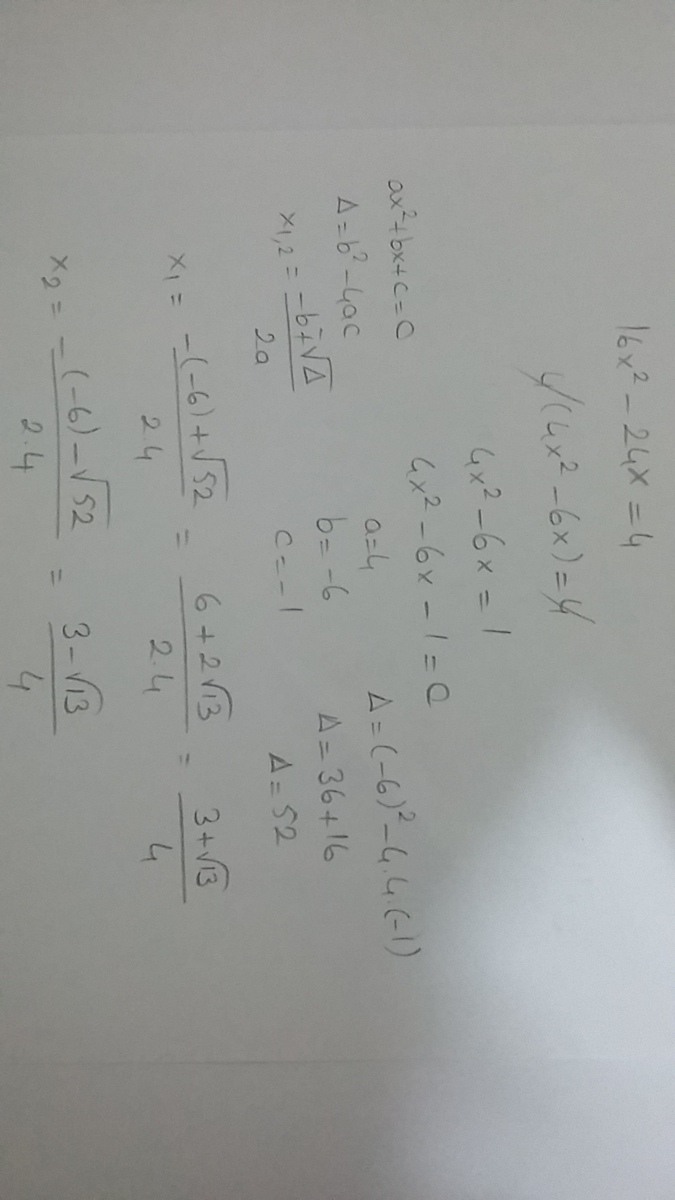 16x² - 24x = 4
4(4x² - 6x) = 4
4x² - 6x = 1
4x² - 6x - 1 = 0
ax² + bx + c = 0
Δ = b² - 4ac
x₁,₂ = (-b ∓ √Δ) / 2a
a = 4
b = -6
c = -1
Δ = (-6)² - 4.4.(-1)
Δ = 36 + 16
Δ = 52
x₁ = (-(-6) + √52) / 2.4 = (6 + 2√13) / 2.4 = (3 + √13) / 4
x₂ = (-(-6) - √52) / 2.4 = (3 - √13) / 4